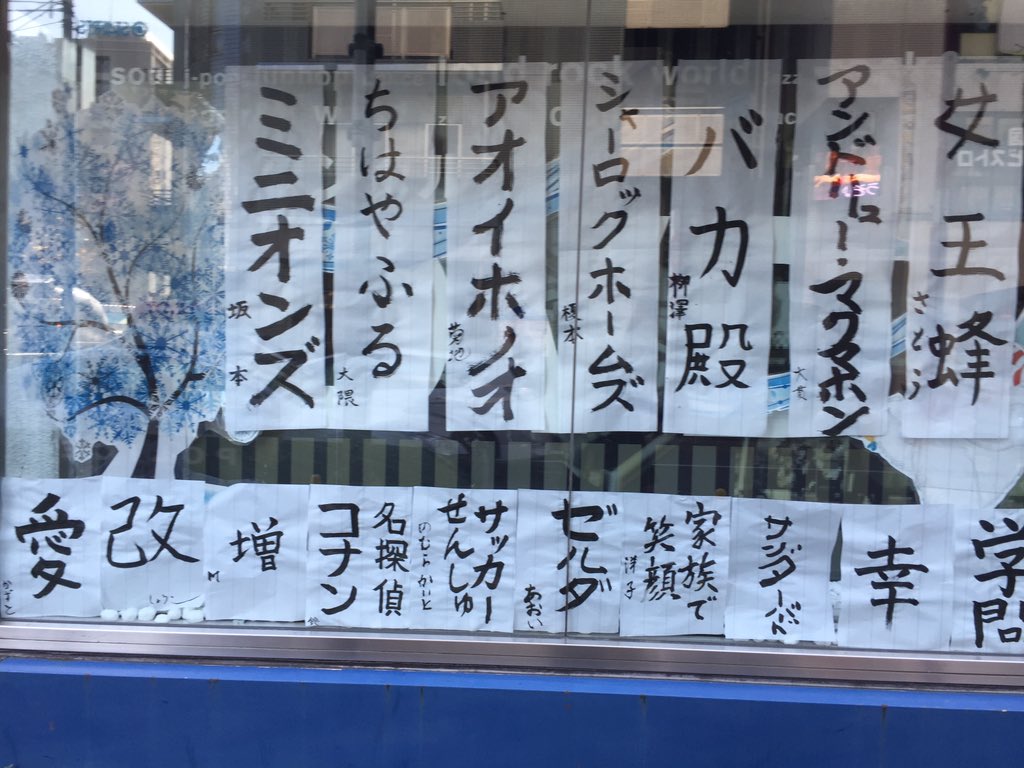 女王蜂
さとう
アンドリュー・マクマホン
大貫
バカ殿
柳澤
シャーロックホームズ
榎本
アオイホノオ
菊池
ちはやふる
大隈
ミニオンズ
坂本
学問
幸
サンダーバード
家族で
笑顔
洋子
ゼルダ
あおい
サッカー
せんしゅ
のむらかいと
名探偵
コナン
増
M
改
愛
soul j-pop
rock world
ビストロ